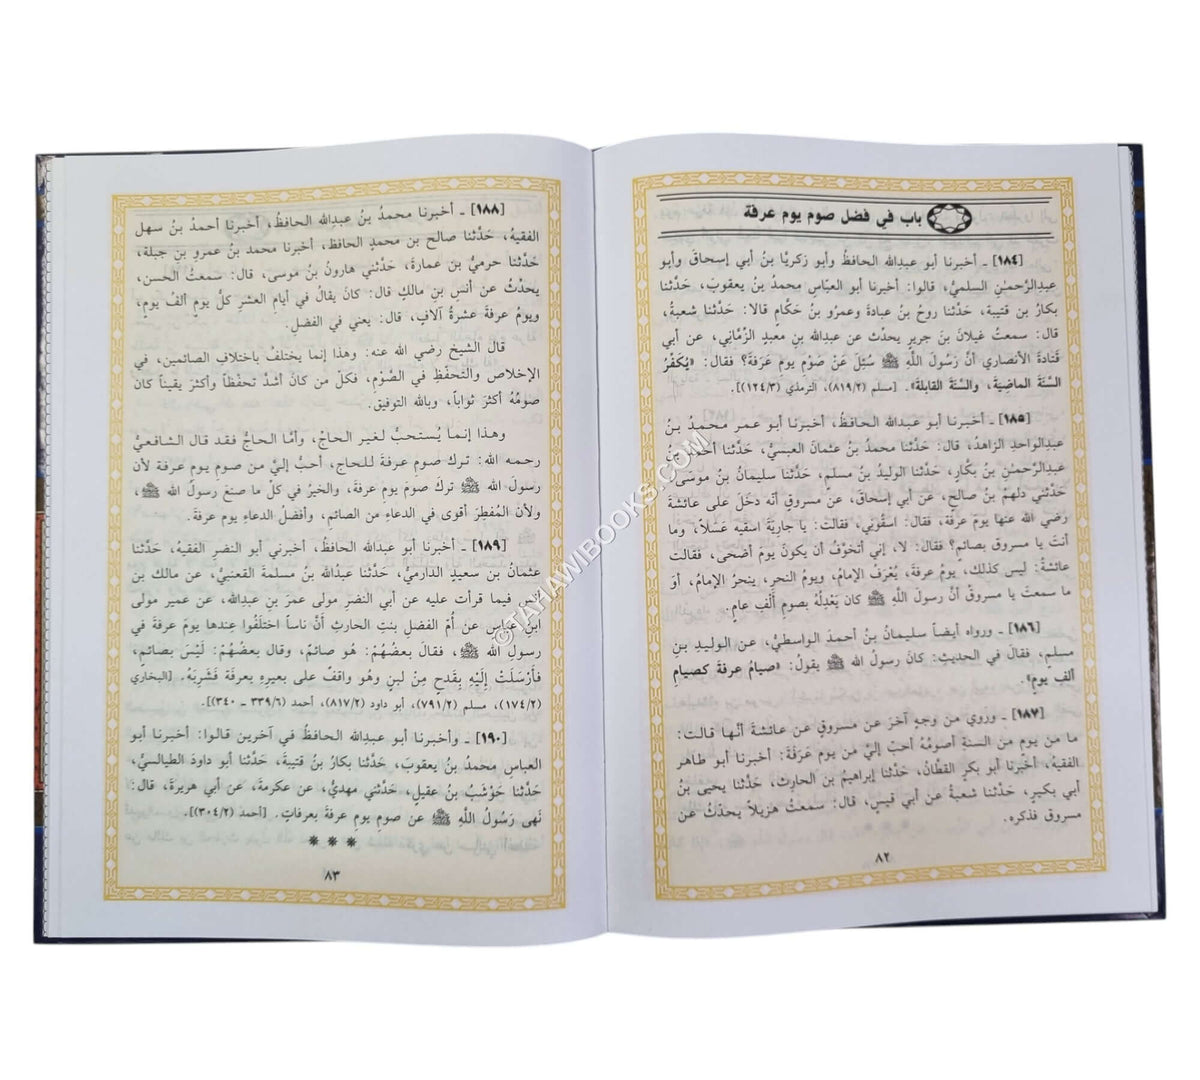 باب في فضل صوم يوم عرفة
[١٨٤] ـ أخبرنا أبو عبدالله الحافظُ وأبو زكريّا بنُ أبي إسحاقَ وأبو
عبدِالرَّحمٰنِ السلميُّ، قالوا: أخبرنا أبو العبّاسِ محمدُ بنُ يعقوبَ، حَدَّثنا
بكارُ بن قتيبة، حَدَّثنا روحُ بنُ عبادةَ وعمرُو بنُ حكّامٍ قالا: حَدَّثنا شعبةُ،
قال: سمعتُ غيلانَ بنَ جريرٍ يحدّث عن عبدِالله بنِ معبدٍ الزِّمَّاني، عن أبي
قَتادةَ الأنصاري أنَّ رَسُولَ اللَّهِ ﷺ سُئِلَ عَنْ صَوْمِ يومِ عَرَفَةَ؟ فقال: «يُكَفِّرُ
السَّنَةَ الماضِيَةَ، والسَّنَةَ القابلة». [مسلم (٨١٩/٢)، الترمذي (١٢٤/٣)].
[١٨٥] ـ أخبرنا أبو عبدالله الحافظُ، أخبرنا أبو عمر محمدُ بنُ
عبدِالواحدِ الزاهدُ، قال: حَدَّثنا محمدُ بنُ عثمانَ العبسيُّ، حَدَّثنا أحمدُ بنُ
عبدِالرَّحمٰنِ بنُ بكّارٍ، حَدَّثنا الوليدُ بنُ مسلمٍ، حَدَّثنا سليمانُ بنُ موسَى،
حَدَّثني دلهمُ بنُ صالحٍ، عن أبي إسحاقَ، عن مسروقٍ أنّه دخَلَ على عائشةَ
رضي الله عنها يومَ عرفة، فقال: اسقُوني، فقالت: يا جاريَةُ اسقيه عَسَلاً، وما
أنتَ يا مسروق بصائمٍ؟ فقال: لا، إني أتخوَّفُ أن يكونَ يومَ أضحى، فقالت
عائشةُ: ليس كذلك، يومُ عرفةَ، يُعْرَفُ الإمامُ، ويومُ النحرِ، ينحرُ الإمامُ، أوَ
ما سمعتَ يا مسروقُ أنَّ رسولَ اللَّهِ ﷺ كان يَعْدِلُهُ بصومِ ألفِ عامٍ.
[١٨٦] ـ ورواه أيضاً سليمانُ بنُ أحمدَ الواسطيُّ، عن الوليدِ بنِ
مسلمٍ، فقال في الحديثِ: كانَ رسولُ الله ﷺ يقولُ: «صيامُ عرفةَ كصيامِ
ألفِ يومٍ».
[١٨٧] ـ وروي من وجهٍ آخرَ عن مسروقٍ عن عائشةَ أنَّها قالت:
ما من يوم من السنةِ أصومُهُ أحبّ إليَّ من يوم عَرَفَةَ: أخبرنا أبو طاهر
الفقيهُ، أخبرنا أبو بكرٍ القطّانُ، حَدَّثنا إبراهيمُ بنُ الحارثِ، حَدَّثنا يحيى بنُ
أبي بكيرٍ، حَدَّثنا شعبةُ عن أبي قيسٍ، قال: سمعتُ هزيلاً يحدّثُ عن
مسروق فذكره.
٨٢
[١٨٨] ـ أخبرنا محمدُ بنُ عبدِالله الحافظُ، أخبرنا أحمدُ بنُ سهل
الفقيهُ، حَدَّثنا صالح بن محمدٍ الحافظ، أخبرنا محمد بنُ عمرو بن جبلة،
حَدَّثنا حرميُّ بن عمارةَ، حَدَّثني هارونُ بنُ موسى، قال: سمعتُ الحسن،
يحدّثُ عن أنسِ بنِ مالكٍ قال: كانَ يقالُ في أيّامِ العشرِ كلُّ يومٍ ألفُ يومٍ،
ويومُ عرفةَ عشرةُ آلافٍ، قال: يعني في الفضل.
قال الشيخ رضي الله عنه: وهذا إنما يختلفُ باختلافِ الصائمين، في
الإخلاص والتحفّظِ في الصَّوْم، فكلّ من كانَ أشدَّ تحفّظاً وأكثرَ يقيناً كان
صومُهُ أكثرَ ثواباً، وبالله التوفيق.
وهذا إنما يُستحبُّ لغيرِ الحاجِّ، وأمَّا الحاجُّ فقد قال الشافعيُّ
رحمه الله: تركُ صومِ عرفةَ للحاج، أحبُّ إليَّ من صومِ يوم عرفة لأن
رسولَ الله ﷺ تركَ صومَ يوم عرفةَ، والخيرُ في كلِّ ما صنعَ رسولُ الله ﷺ،
ولأن المُفطِرَ أقوى في الدعاءِ من الصائم، وأفضلُ الدعاءِ يومَ عرفة.
[١٨٩] ـ أخبرنا أبو عبدالله الحافظُ، أخبرني أبو النضرِ الفقيهُ، حَدَّثنا
عثمانُ بن سعيدٍ الدارميُّ، حَدَّثنا عبدُالله بنُ مسلمةَ القعنبيُّ، عن مالك بن
أنسٍ فيما قرأت عليه عن أبي النضرِ مولى عمرَ بنِ عبدِالله، عن عمير مولى
ابن عباسٍ عن أمِّ الفضلِ بنتِ الحارثِ أنَّ ناساً اختلَفُوا عِندها يومَ عرفةَ في
رسولِ الله ﷺ، فقالَ بعضُهُمْ: هُو صائمٌ، وقال بعضُهُمْ: لَيْسَ بصائمٍ،
فأَرْسَلَتْ إِلَيْهِ بِقَدحٍ مِنْ لبنٍ وهُو واقفٌ على بعيرِهِ بعرفَةَ فَشَرِبَهُ. [البخاري
(١٧٤/٢)، مسلم (٧٩١/٢)، أبو داود (٨١٧/٢)، أحمد (٣٣٩/٦ ـ ٣٤٠)].
[١٩٠] ـ وأخبرنا أبو عبدِالله الحافظُ في آخرين قالوا: أخبرنا أبو
العباسِ محمدُ بنُ يعقوبَ، حَدَّثنا بكارُ بنُ قتيبةَ، حَدَّثنا أبو داودَ الطيالسيُّ،
حَدَّثنا حَوْشَبُ بنُ عقيلٍ، حَدَّثني مهديٌّ، عن عكرمةَ، عن أبي هريرةَ، قال:
نَهى رَسُولُ اللَّهِ ﷺ عن صومِ يومِ عرفةَ بعرفاتٍ. [أحمد (٣٠٤/٢)].
✷ ✷ ✷
٨٣
©TAHAWIBOOKS.COM